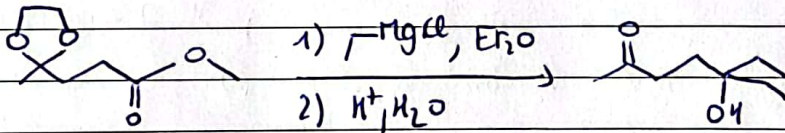 O O
1) MgCl, Et₂O
O
2) H⁺, H₂O
O
O
OH